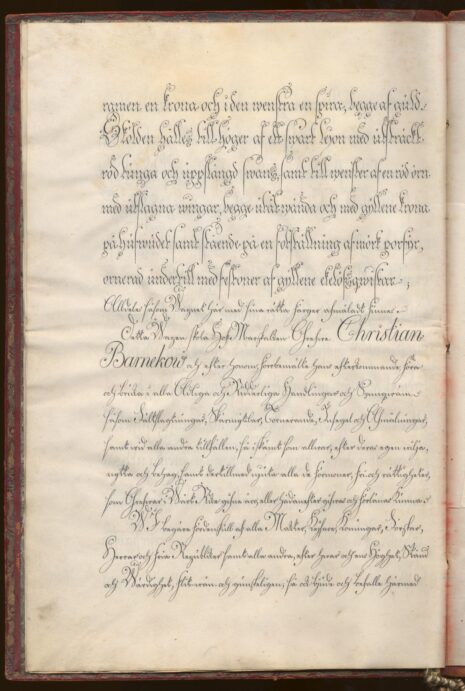 ramen en krona och i den wenstra en spira, begge af guld.
Skölden hålles till höger af ett swart lejon med utsträckt
röd tunga och uppslängd swans, samt till wenster af en röd örn
med utslagna wingar, begge utåt wända och med gyllene krona
på hufwudet samt stående på en fotställning af mörk porfyr,
ornerad undertill med festoner af gyllene eklöfsqwistar;
Alldeles såsom Wapnet här med sina rätta färger afmåladt finnes.
Detta Wapen skola Hof-Marskalken Friherre Christian
Barnekow, och efter honom, förbemälte hans efterkommande, föra
och bruka i alla Adeliga och Ridderliga Handlingar och
såsom Fältslagtningar, Skärmytslar, Tornerande, Insegel och Gemälningar,
samt vid alla andra tillfällen, så i skämt som allvar, efter deras egen vilja,
nytta och behag, samt dertill med njuta alla de förmoner, fri och rättigheter,
som Friherrar i Wårt Rike gifna äro, eller hädanefter gifvas och förlänas kunna.
Wi begäre fördenskull af alla Makter, Kejsare, Konungar, Furstar,
Herrar och fria Republiker samt alla andra, efter hvars och ens Höghet, Stånd
och Wärdighet, flit- vän- och gunsteligen, så ock bjude och befalle härmed